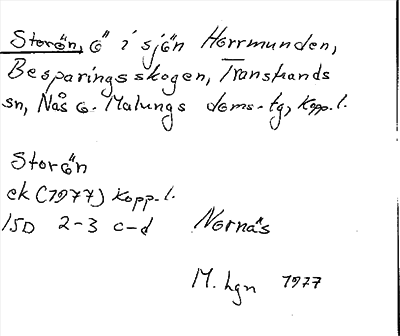 Storön, ö i sjön Horrmunden,
Besparingsskogen, Transtrands
sn, Nås o. Malungs doms-tg, Kopp.l.
Storön
ek (1977) Kopp.l.
15D 2-3 c-d Nornäs
M. Lgn 1977